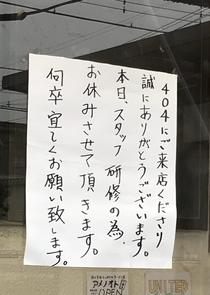 404にご来店くださり
誠にありがとうございます。
本日、スタッフ研修の為、
お休みさせて頂きます。
何卒宜しくお願い致します。
アメノオト
OPEN
UNITED